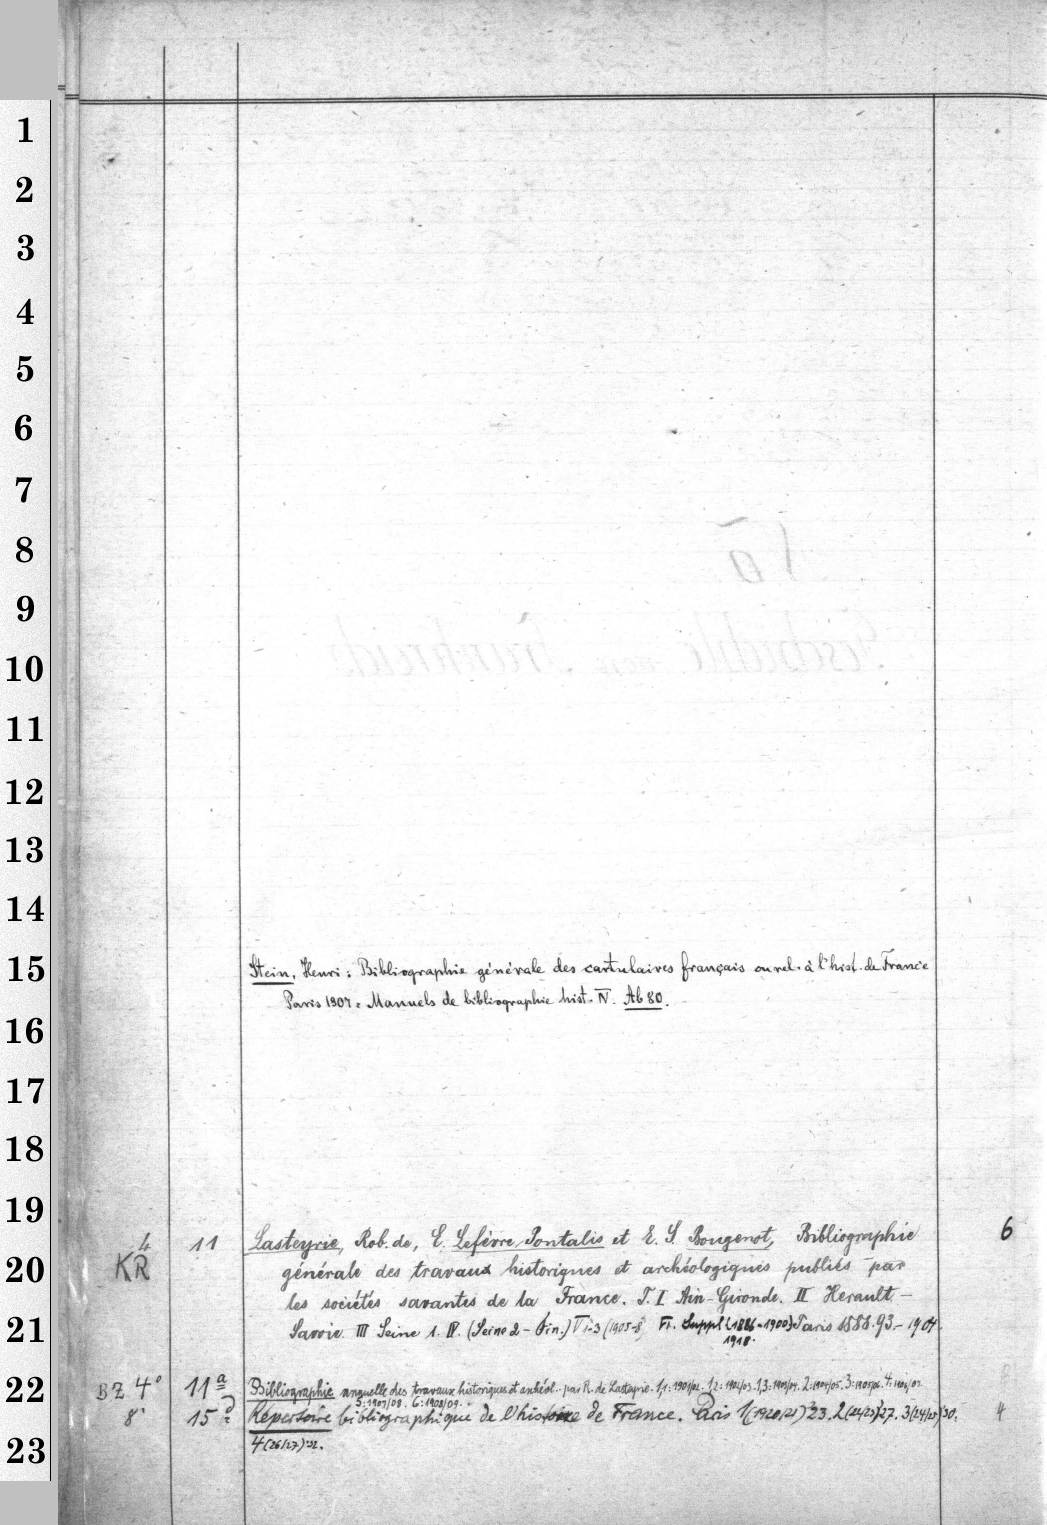 1
2
3
4
5
6
7
8
9
10
11
12
13
14
15
Stein, Henri: Bibliographie générale des cartulaires français ou rel. à l'hist. de France
Paris 1907 = Manuels de bibliographie hist. IV. Ab 80.
16
17
18
19
4 11 Lasteyrie, Rob. de, E. Lefèvre, Pontalis et E. S. Bougenot, Bibliographie 6
20 KR générale des travaux historiques et archéologiques publiés par
les sociétés savantes de la France. T. I Ain-Gironde. II Herault-
21 Savoie. III Seine 1. IV. (Seine 2 - fin.) V 1-3 (1905-8) VI. Suppl. (1886-1900) Paris 1888.93.-1904.
1918.
22 BZ 4° 11 a Bibliographie annuelle des travaux historiques et archéol. par R. de Lasteyrie. 1,1: 1901/02. 1,2: 1902/03. 1,3: 1903/04. 2: 1904/05. 3: 1905/06. 4: 1906/07.
5: 1907/08. 6: 1908/09.
8° 15 d Répertoire bibliographique de l'histoire de France. Paris 1 (1920/21) 23. 2 (22/23) 27. 3 (24/25) 30. 4
23 4 (26/27) 32.